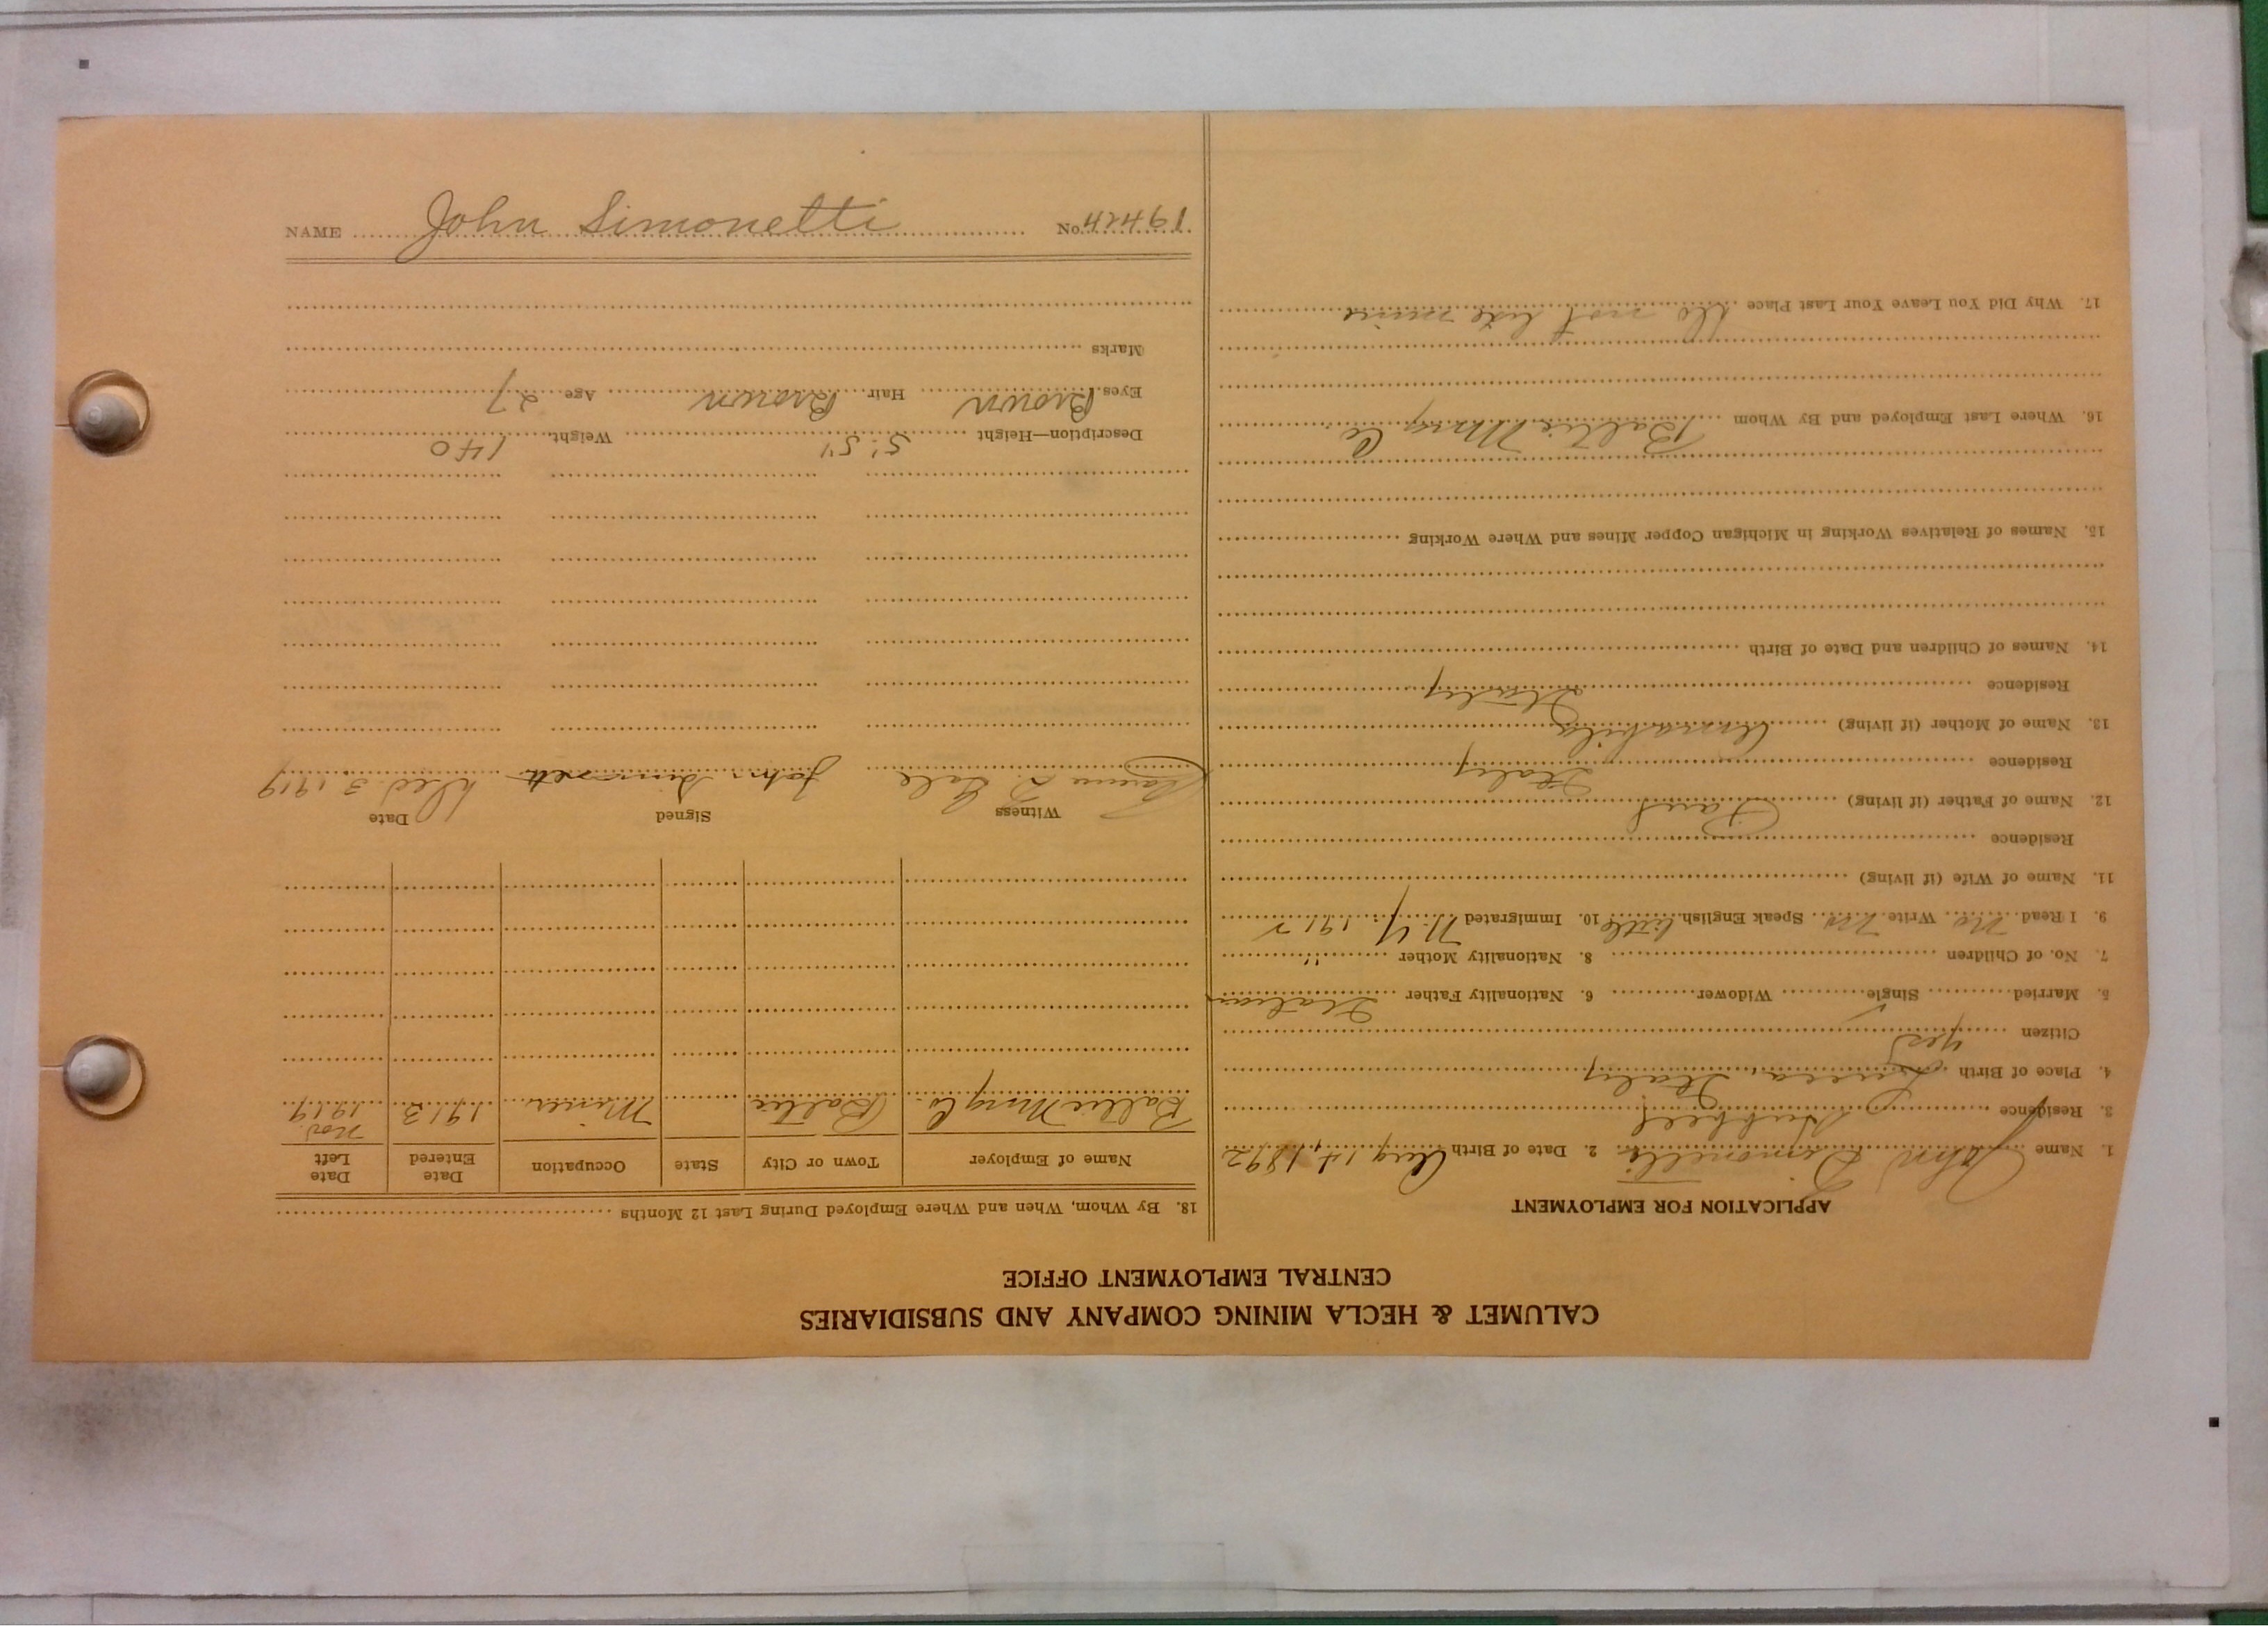 CALUMET & HECLA MINING COMPANY AND SUBSIDIARIES
CENTRAL EMPLOYMENT OFFICE
APPLICATION FOR EMPLOYMENT
1. Name John Simonetti 2. Date of Birth Aug 1st, 1892
3. Residence Hubbell
4. Place of Birth Lucca, Italy
Citizen yes
5. Married Single ✓ Widower 6. Nationality Father Italian
7. No. of Children 8. Nationality Mother "
9. I Read No Write No Speak English little 10. Immigrated N.Y. 1912
11. Name of Wife (if living)
Residence
12. Name of Father (if living) Paul
Residence Italy
13. Name of Mother (if living)
Residence Italy
14. Names of Children and Date of Birth
15. Names of Relatives Working in Michigan Copper Mines and Where Working
16. Where Last Employed and By Whom Baltic Mining Co
17. Why Did You Leave Your Last Place Do not like mine
18. By Whom, When and Where Employed During Last 12 Months
Name of Employer Town or City State Occupation Date Entered Date Left
Baltic Mining Co. Baltic Miner 1913 Nov. 1919
Witness Signed Date
John Simonetti Dec 3 1919
Description—Height 5' 5" Weight 140
Eyes Brown Hair Brown Age 27
Marks
NAME John Simonetti No. 19424